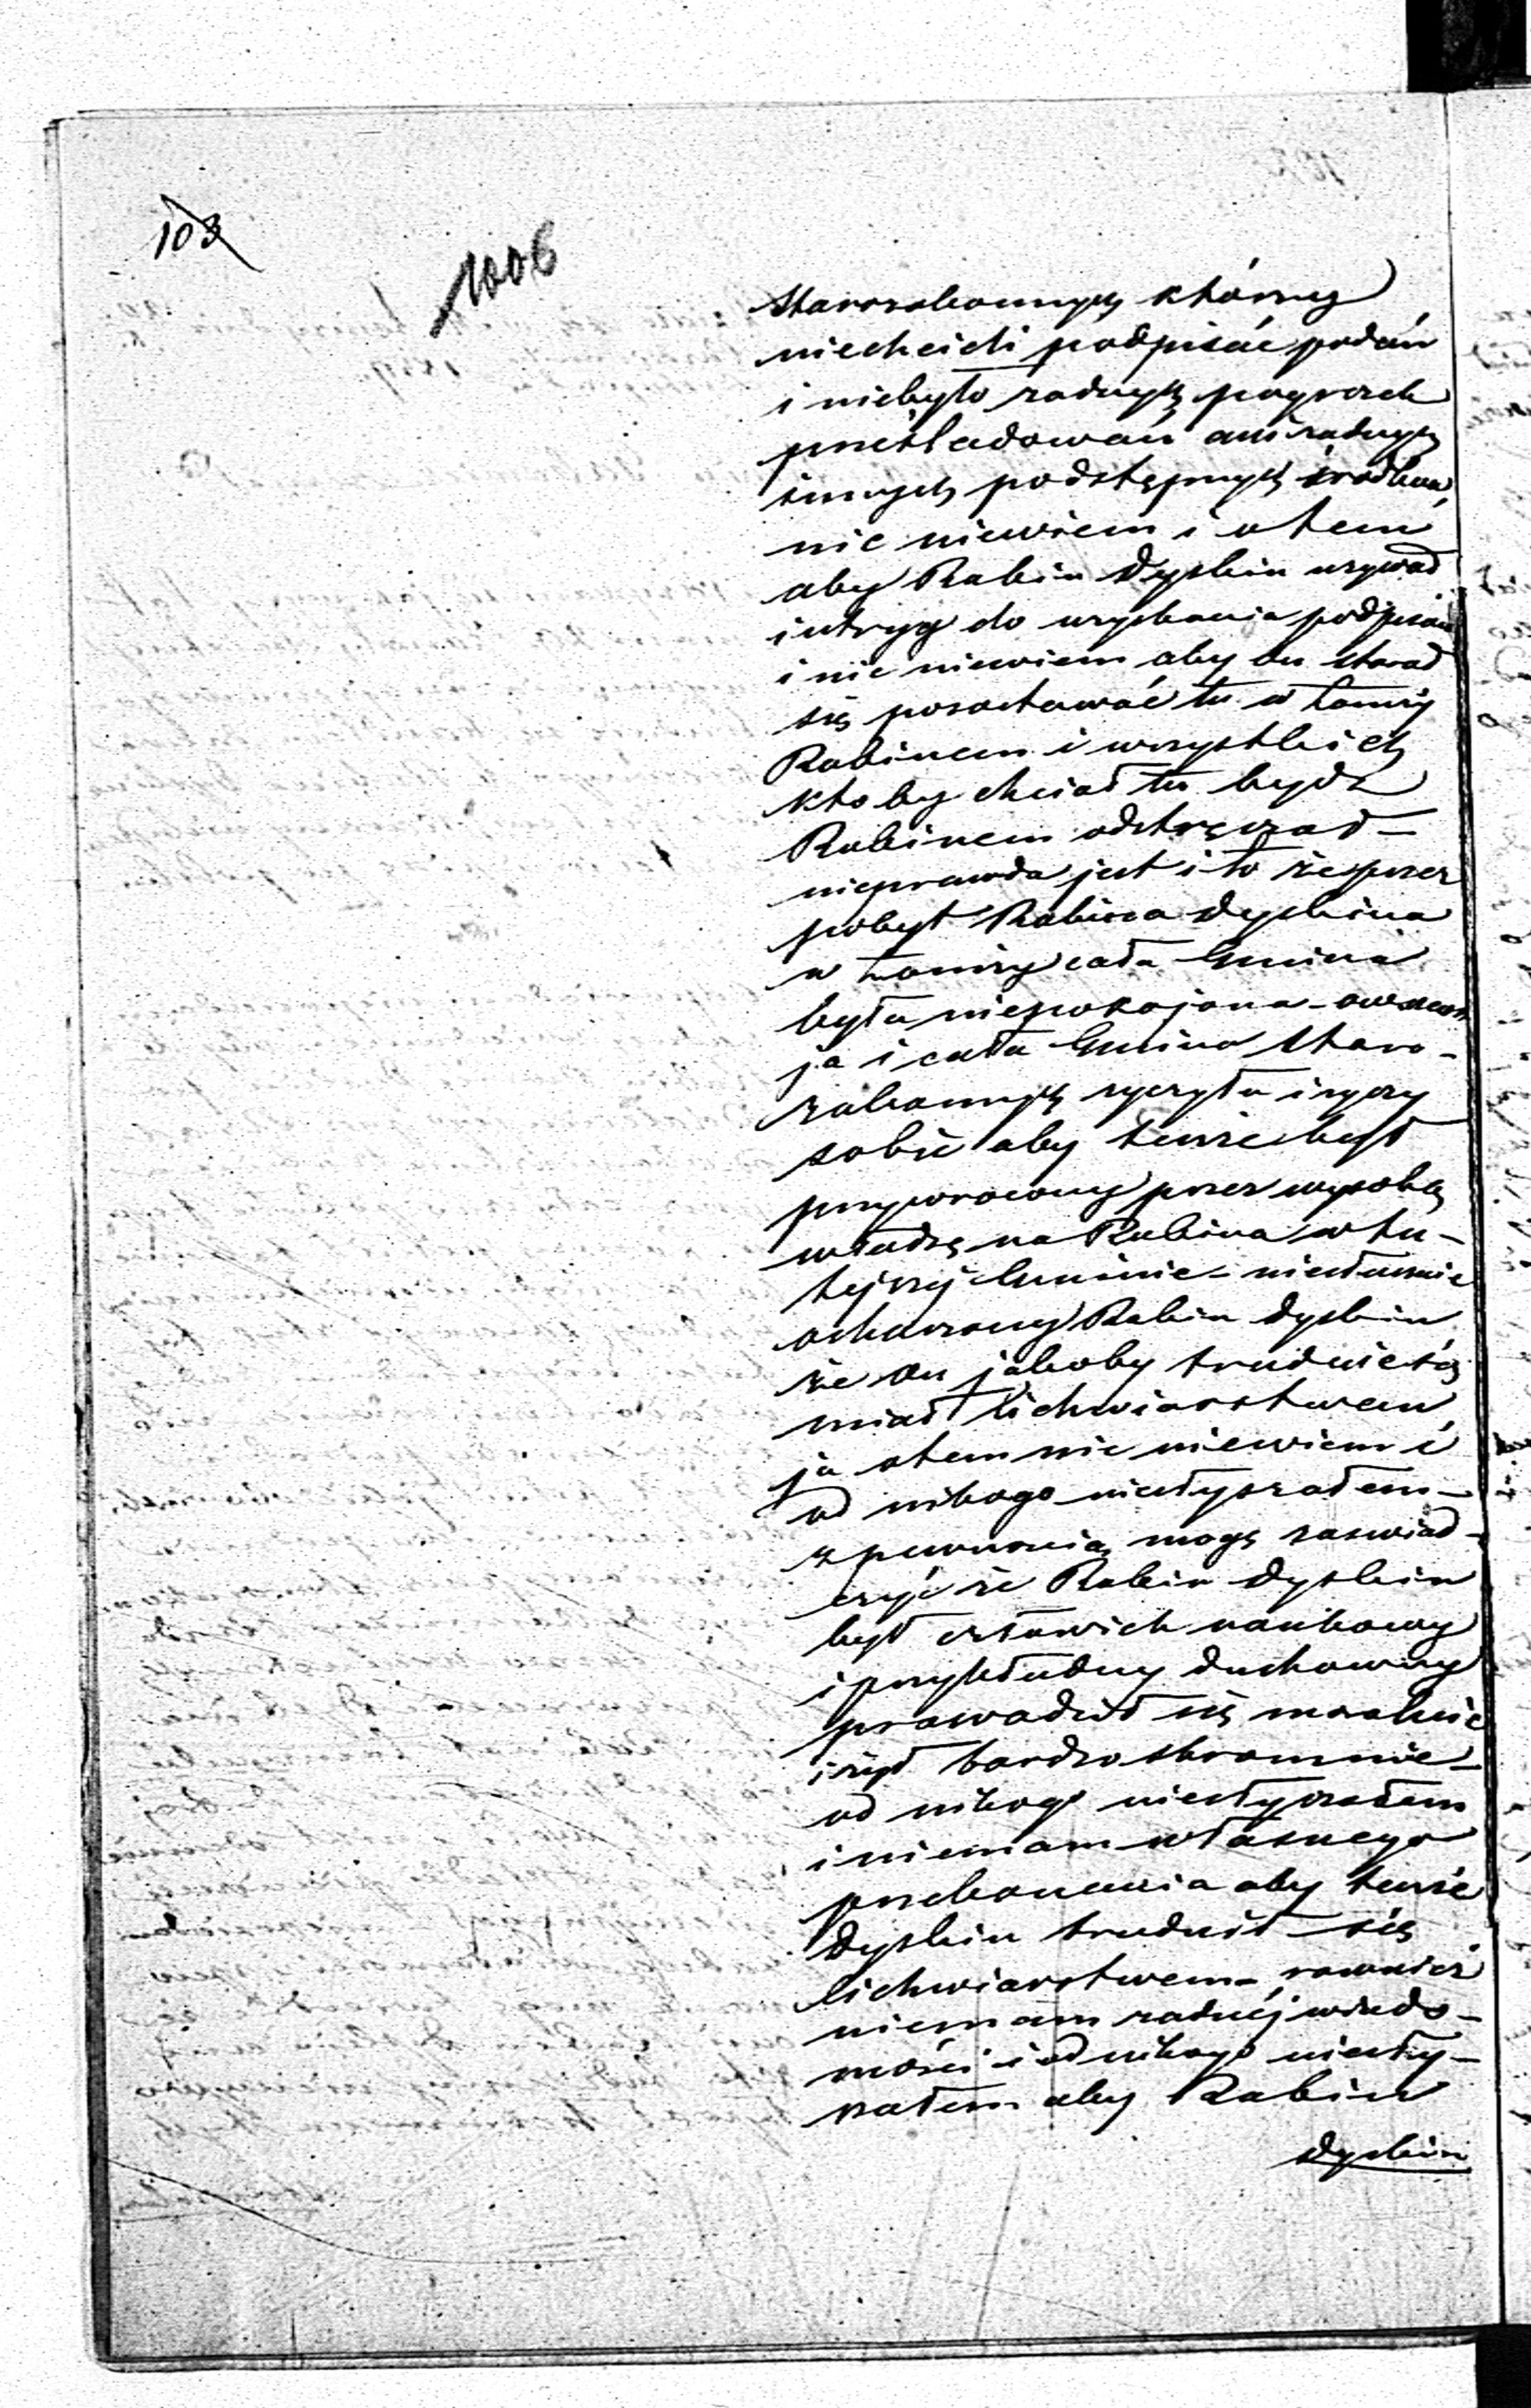 103
1006
Starozakonnych którzy
niechcieli podpisać podań
i niebyło żadnych pogrozek
prześladowań ani żadnych
innych podstępnych środków,
nic niewiem i o tem
aby Rabin Dyskin używał
intryg do uzyskania podpisów
i nic niewiem aby on starał
się pozostawać tu w Łomży
Rabinem i wszystkich
ktoby chciał tu bydź
Rabinem odstręczał –
nieprawda jest i to że przez
pobyt Rabina Dyskina
w Łomży cała Gmina
była niepokojona – owszem
ja i cała Gmina Staro-
zakonnych życzyła i życzy
sobie aby tenże był
przywrocony przez wysoką
władzę na Rabina w tu-
tejszej Gminie – niesłusznie
oskarżony Rabin Dyskin
że on jakoby trudnić się
miał lichwiarstwem
ja otem nic niewiem i
od nikogo niesłyszałem –
z pewnością mogę zaswiad-
czyć że Rabin Dyskin
był człowiek naukowy
i przykładny duchowny
prowadził się moralnie
i żył bardzo skromnie –
od nikogo niesłyszałem
i niemam własnego
przekonania aby tenże
Dyskin trudnił się
lichwiarstwem – rownież
niemam żadnej wiado-
mości i od nikogo niesły-
szałem aby Rabin
Dyskin